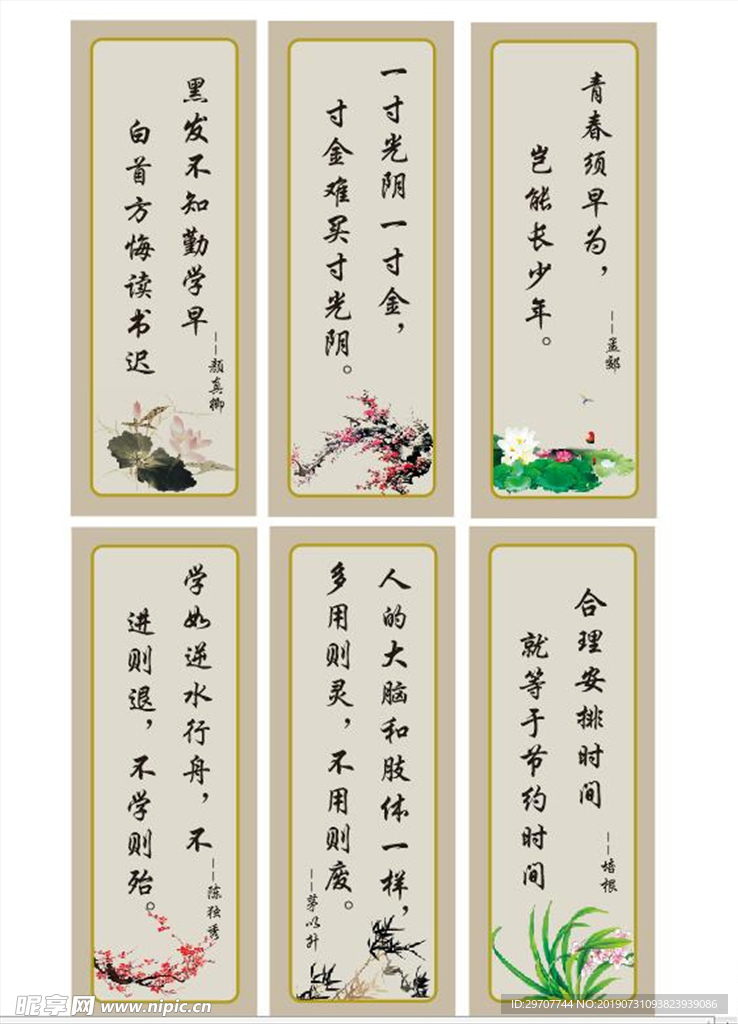 黑发不知勤学早
白首方悔读书迟
——颜真柳
一寸光阴一寸金，
寸金难买寸光阴。
青春须早为，
岂能长少年。
——孟郊
学如逆水行舟，不
进则退，不学则殆。
——陈独秀
人的大脑和肢体一样，
多用则灵，不用则废。
——茅以升
合理安排时间
就等于节约时间
——培根
昵享网 www.nipic.cn
ID:29707744 NO:20190731093823939086